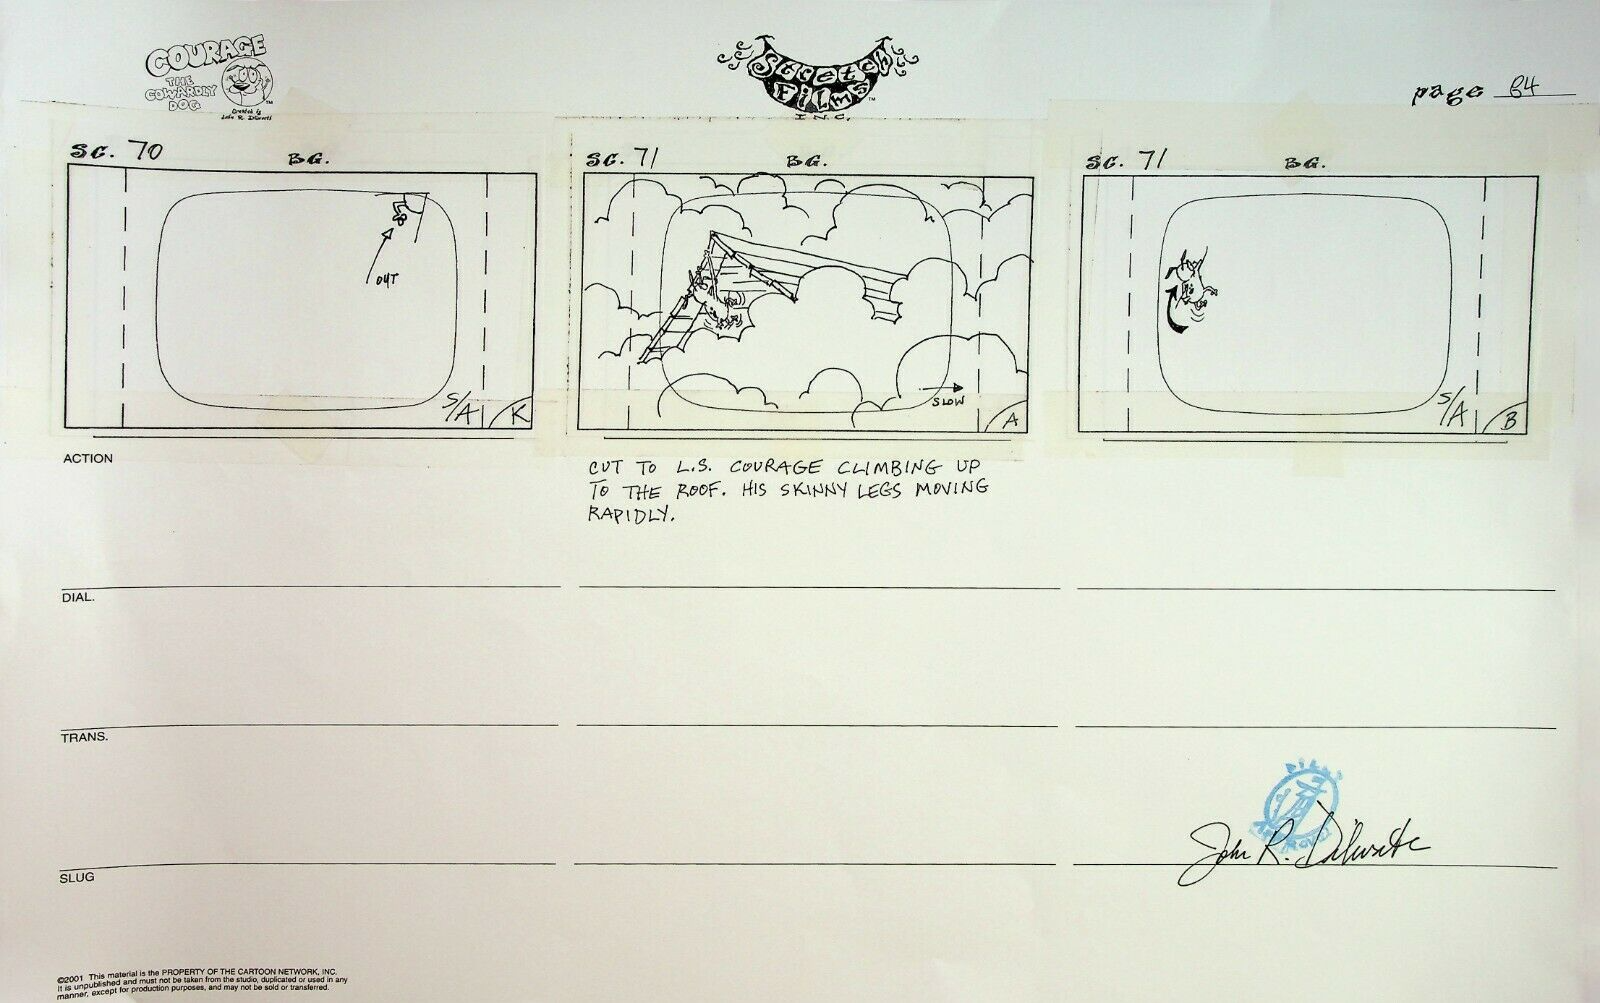 COURAGE
THE
COWARDLY
DOG
Created by
John R. Dilworth
Stretch
Films
INC.
page 64
SC. 70
BG.
OUT
S/A
K
SC. 71
BG.
SLOW
A
SC. 71
BG.
S/A
B
ACTION
CUT TO L.S. COURAGE CLIMBING UP
TO THE ROOF. HIS SKINNY LEGS MOVING
RAPIDLY.
DIAL.
TRANS.
SLUG
John R. Dilworth
©2001 This material is the PROPERTY OF THE CARTOON NETWORK, INC.
It is unpublished and must not be taken from the studio, duplicated or used in any
manner, except for production purposes, and may not be sold or transferred.